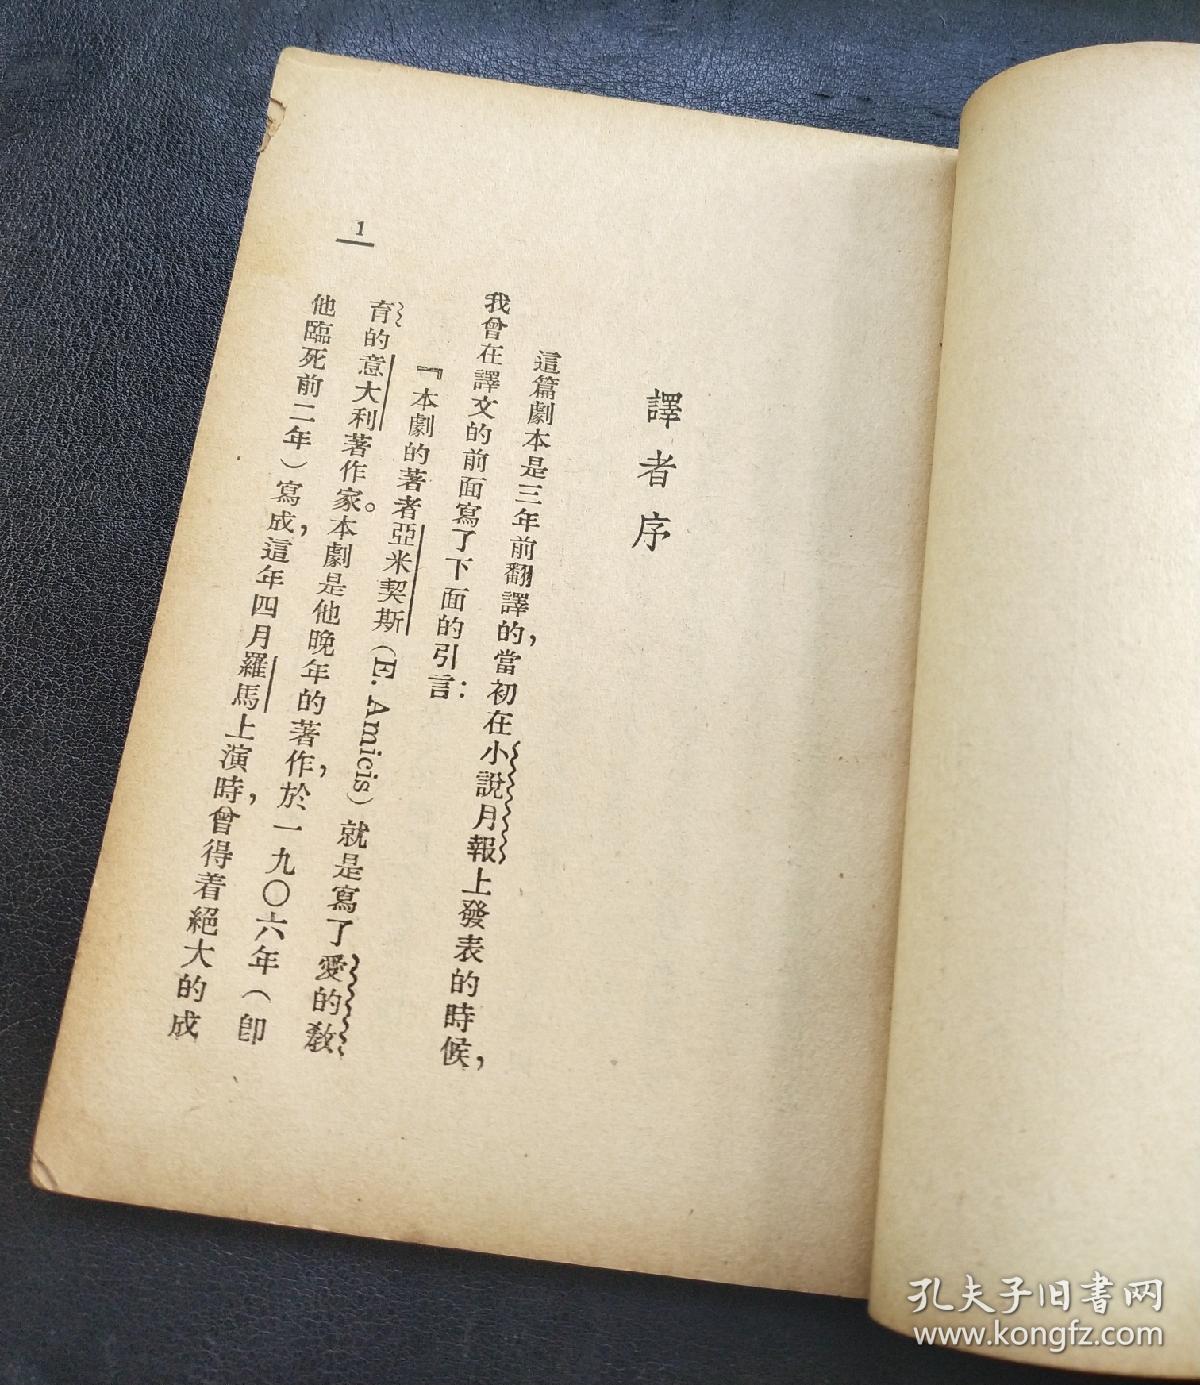 譯者序
這篇劇本是三年前翻譯的，當初在小說月報上發表的時候，
我曾在譯文的前面寫了下面的引言：
『本劇的著者亞米契斯（E. Amicis）就是寫了愛的教
育的意大利著作家。本劇是他晚年的著作，於一九〇六年（卽
他臨死前二年）寫成，這年四月羅馬上演時，曾得着絕大的成
1
孔夫子旧书网
www.kongfz.com